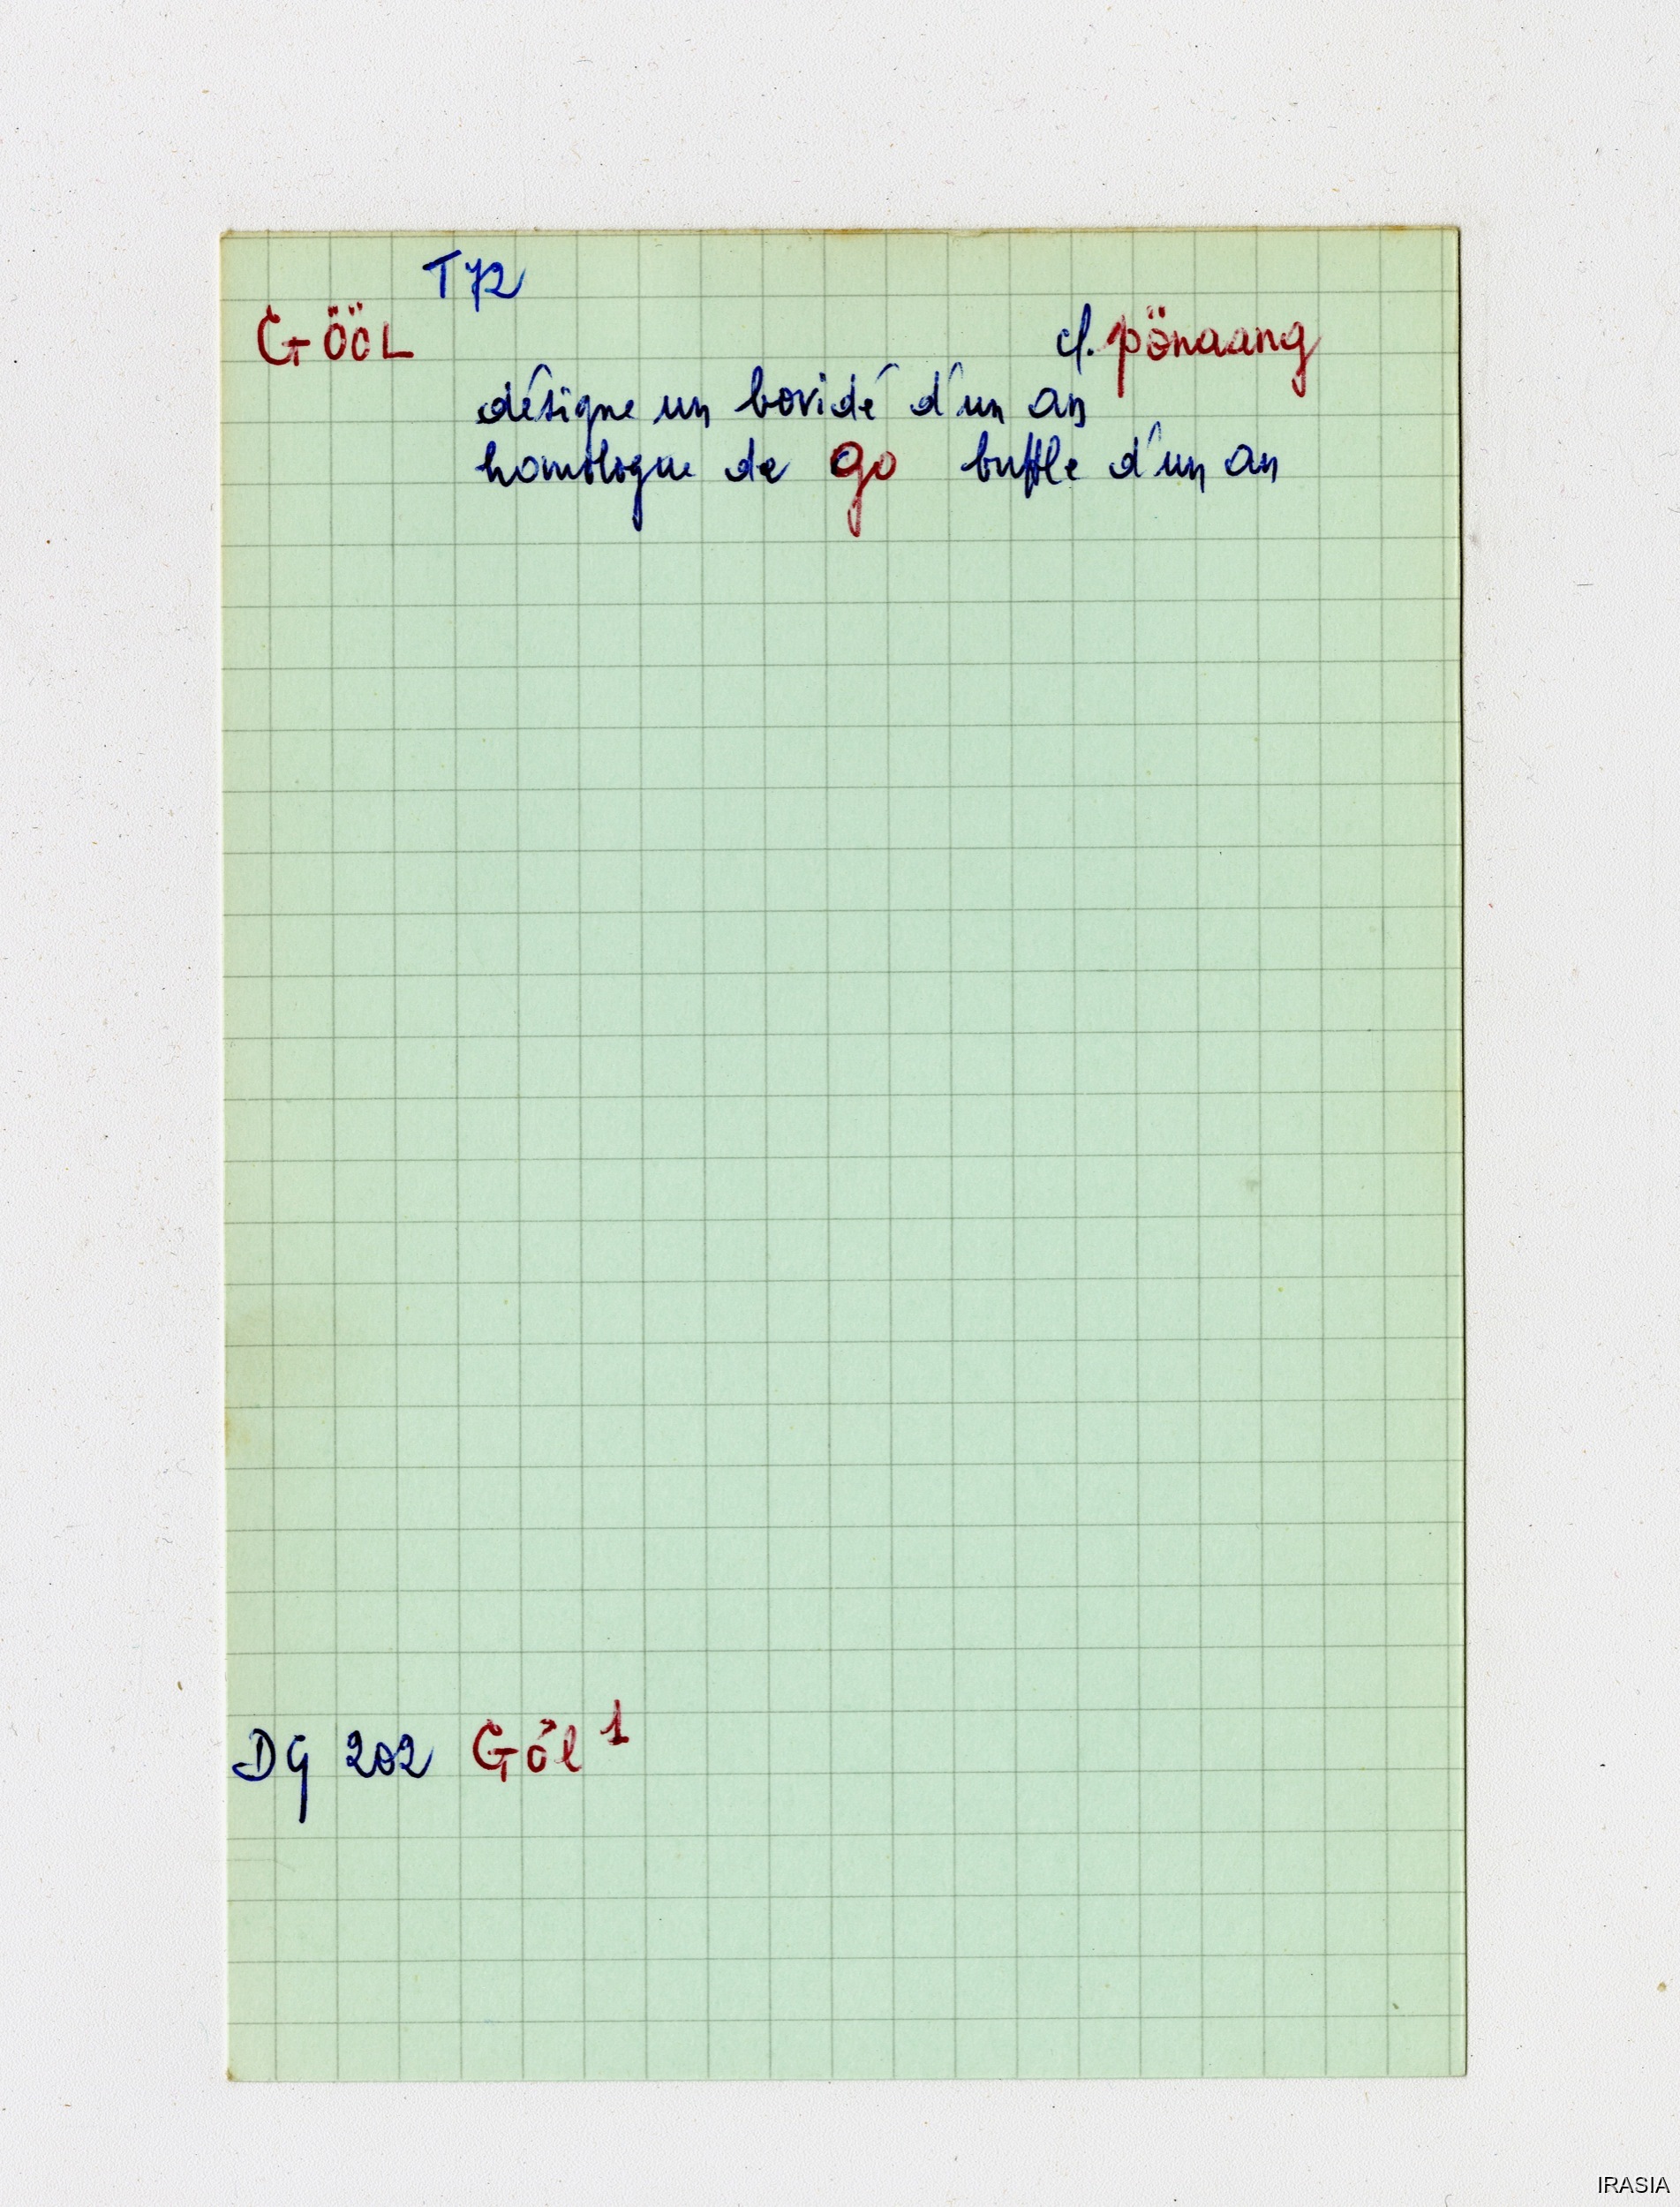 T72
GÖÖL cf. pönaang
désigne un bovidé d'un an
homologue de go buffle d'un an
DG 202 Göl 1
IRASIA